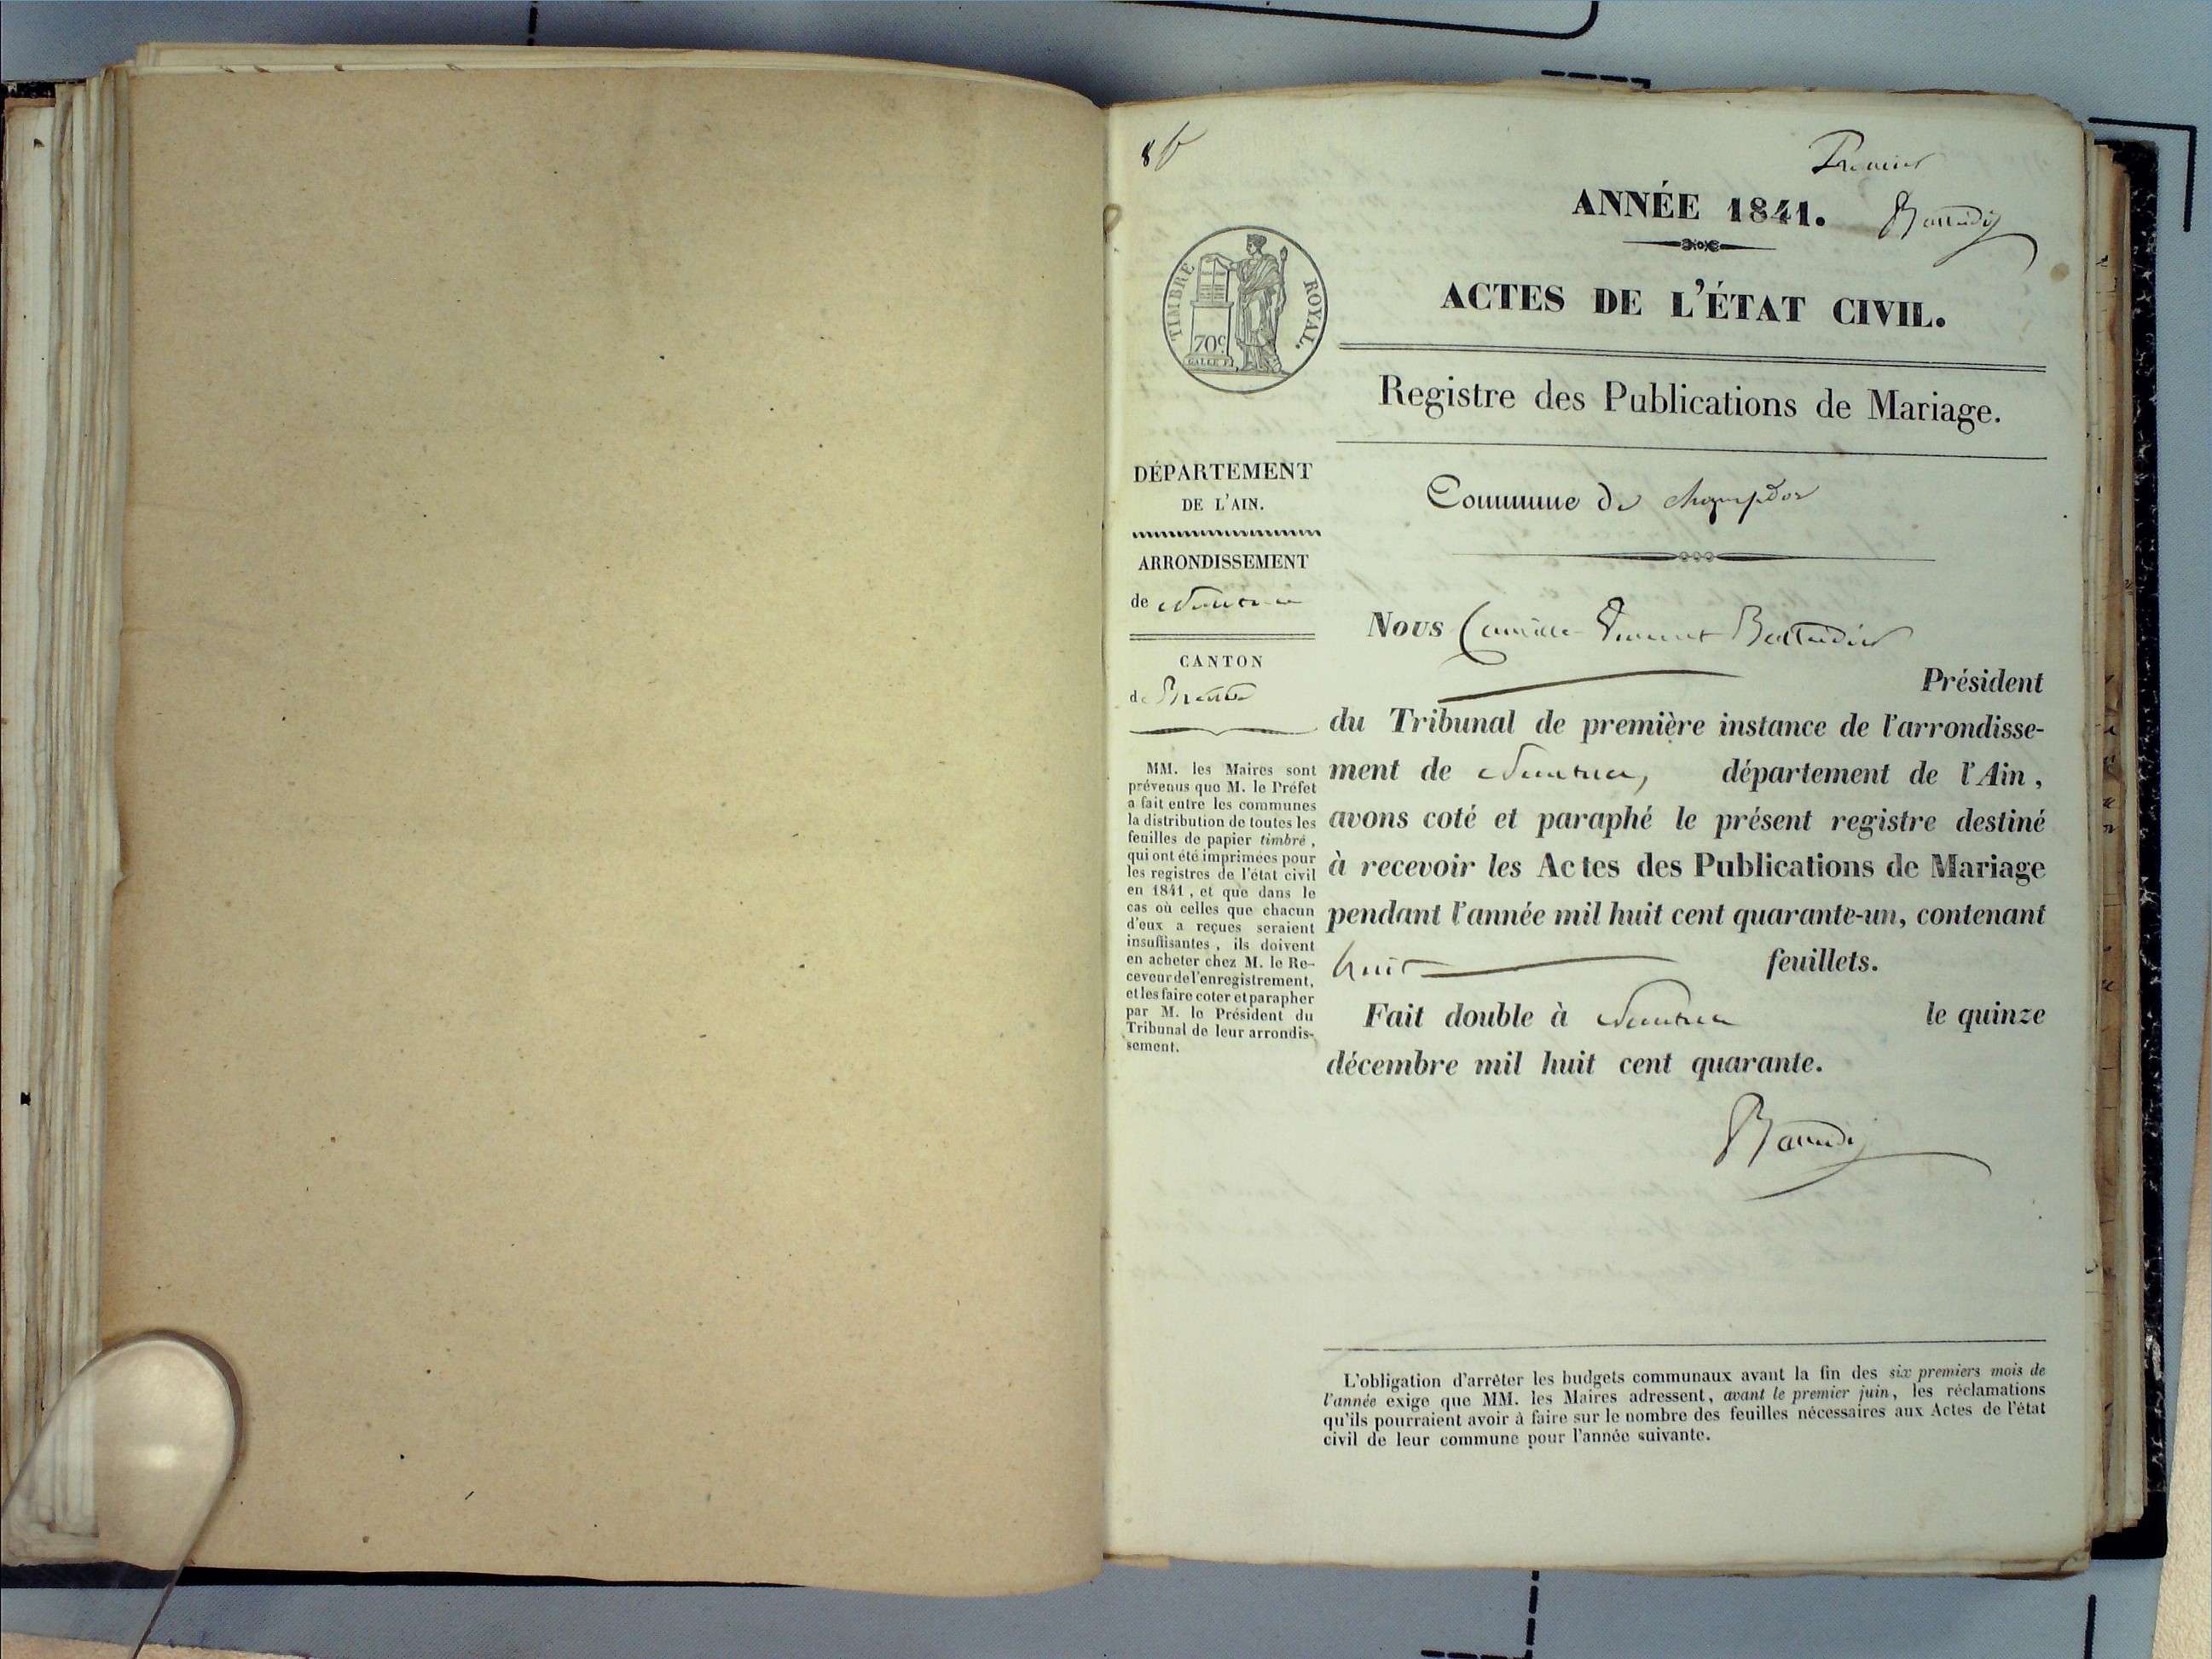 8 f
Premier
ANNÉE 1841.
ACTES DE L'ÉTAT CIVIL.
TIMBRE ROYAL.
70c
Registre des Publications de Mariage.
DÉPARTEMENT
DE L'AIN.
ARRONDISSEMENT
de Nantua
CANTON
de
MM. les Maires sont
prévenus que M. le Préfet
a fait entre les communes
la distribution de toutes les
feuilles de papier timbré,
qui ont été imprimées pour
les registres de l'état civil
en 1841, et que dans le
cas où celles que chacun
d'eux a reçues seraient
insuffisantes, ils doivent
en acheter chez M. le Re-
ceveur de l'enregistrement,
et les faire coter et parapher
par M. le Président du
Tribunal de leur arrondis-
sement.
Commune de champdor
Nous Camille Vincent
Président
du Tribunal de première instance de l'arrondisse-
ment de Nantua, département de l'Ain,
avons coté et paraphé le présent registre destiné
à recevoir les Actes des Publications de Mariage
pendant l'année mil huit cent quarante-un, contenant
huit feuillets.
Fait double à Nantua le quinze
décembre mil huit cent quarante.
L'obligation d'arrêter les budgets communaux avant la fin des six premiers mois de
l'année exige que MM. les Maires adressent, avant le premier juin, les réclamations
qu'ils pourraient avoir à faire sur le nombre des feuilles nécessaires aux Actes de l'état
civil de leur commune pour l'année suivante.